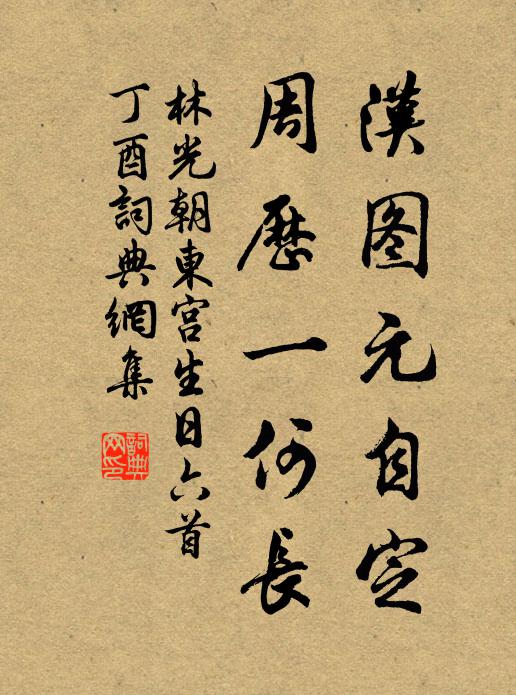 漢图元自定
周歷一何長
林光朝東宫生日六首
丁酉詞典網集
詞典网印